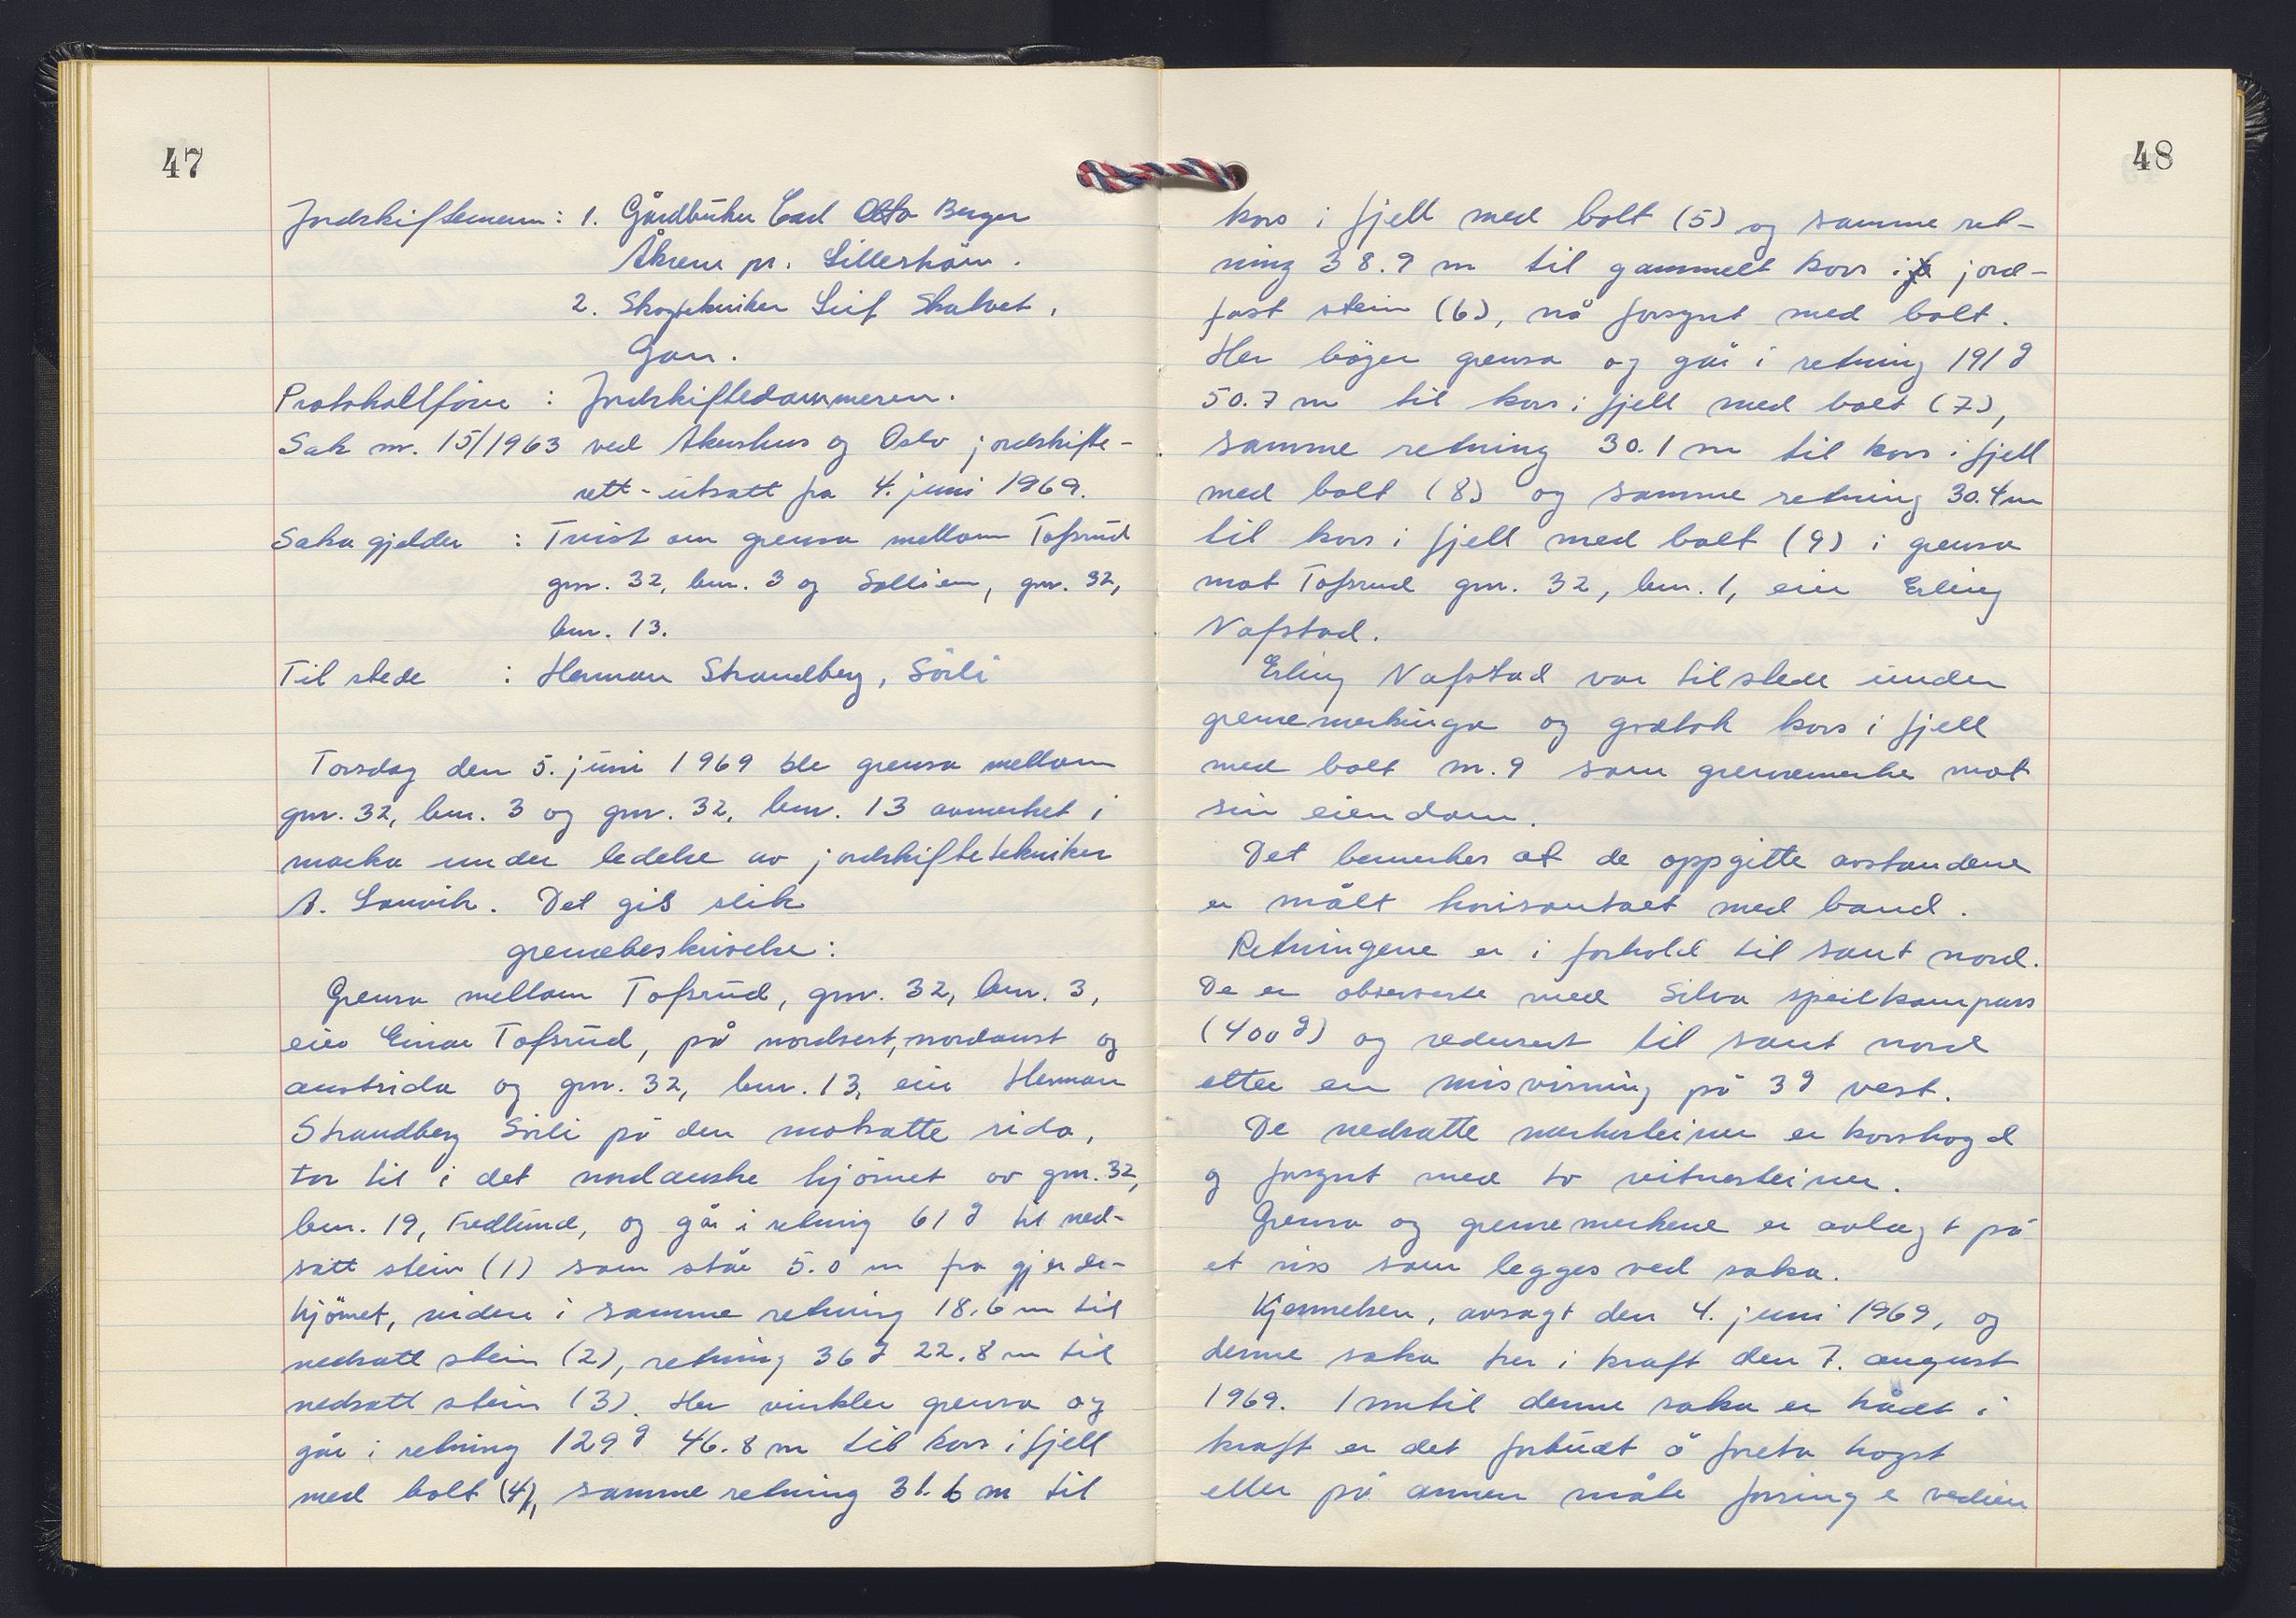 47
Jordskiftemenn: 1. Gårdbruker Carl Otto Berger
Åkrene pr. Lilleström.
2. Skogtekniker Leif Skatvet,
Gan.
Protokollförer : Jordskiftedommeren.
Sak nr. 15/1963 ved Akershus og Oslo jordskifte-
rett - utsatt fra 4. juni 1969.
Saka gjelder : Tvist om grensa mellom Tofsrud
gnr. 32, bnr. 3 og Sollien, gnr. 32,
bnr. 13.
Til stede : Herman Strandberg, Sörli
Torsdag den 5. juni 1969 ble grensa mellom
gnr. 32, bnr. 3 og gnr. 32, bnr. 13 avmerket i
marka under ledelse av jordskiftetekniker
A. Lauvik. Det gis slik
grensebeskrivelse:
Grensa mellom Tofsrud, gnr. 32, bnr. 3,
eier Einar Tofsrud, på nordvest, nordaust og
austsida og gnr. 32, bnr. 13, eier Herman
Strandberg Sörli på den motsatte sida,
tar til i det nordauske hjörnet av gnr. 32,
bnr. 19, Fredlund, og går i retning 61 g til ned-
satt stein (1) som står 5.0 m fra gjerde-
hjörnet, videre i samme retning 18.6 m til
nedsatt stein (2), retning 36 g 22.8 m til
nedsatt stein (3). Her vinkler grensa og
går i retning 129 g 46.8 m til kors i fjell
med bolt (4), samme retning 31.6 m til
48
kors i fjell med bolt (5) og samme ret-
ning 38.9 m til gammelt kors i jord-
fast stein (6), nå forsynt med bolt.
Her böyer grensa og går i retning 191 g
50.7 m til kors i fjell med bolt (7),
samme retning 30.1 m til kors i fjell
med bolt (8) og samme retning 30.4 m
til kors i fjell med bolt (9) i grensa
mot Tofsrud gnr. 32, bnr. 1, eier Erling
Nafstad.
Erling Nafstad var tilstede under
grensemerkinga og godtok kors i fjell
med bolt nr. 9 som grensemerke mot
sin eiendom.
Det bemerkes at de oppgitte avstandene
er målt horisontalt med band.
Retningene er i forhold til sant nord.
De er observerte med Silva speilkompass
(400 g) og redusert til sant nord
etter en misvisning på 3 g vest.
De nedsatte merkesteiner er korshogd
og forsynt med to vitnesteiner.
Grensa og grensemerkene er avlagt på
et riss som legges ved saka.
Kjennelsen, avsagt den 4. juni 1969, og
denne saka trer i kraft den 7. august
1969. Inntil denne saka er trådt i
kraft er det forbudt å foreta hogst
eller på annen måte forringe verdien